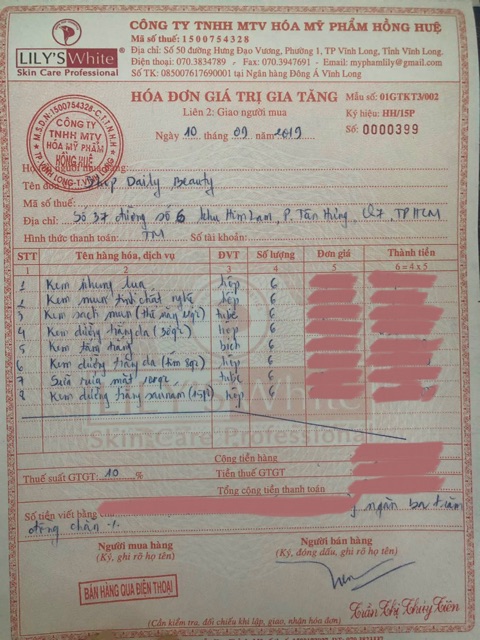 CÔNG TY TNHH MTV HÓA MỸ PHẨM HỒNG HUỆ
Mã số thuế: 1500754328
LILY'S White
Skin Care Professional
Địa chỉ: Số 50 đường Hưng Đạo Vương, Phường 1, TP Vĩnh Long, Tỉnh Vĩnh Long.
Điện thoại: 070.3834789 - Fax: 070.3947691 - Email: myphamlily@gmail.com
Số TK: 085007617690001 tại Ngân hàng Đông Á Vĩnh Long
HÓA ĐƠN GIÁ TRỊ GIA TĂNG
Mẫu số: 01GTKT3/002
Liên 2: Giao người mua
Ký hiệu: HH/15P
Ngày 10 tháng 09 năm 2019
Số: 0000399
M.S.D.N:1500754328-C.T.T.N.H.H
CÔNG TY
TNHH MTV
HÓA MỸ PHẨM
HỒNG HUỆ
TP. VĨNH LONG-T. VĨNH LONG
Họ tên người mua hàng:
Tên đơn Shop Daily Beauty
Mã số thuế:
Địa chỉ: Số 37 đường số 6 khu Him Lam, P. Tân Hưng, Q7, TP HCM
Hình thức thanh toán: TM Số tài khoản:
STT Tên hàng hóa, dịch vụ ĐVT Số lượng Đơn giá Thành tiền
1 2 3 4 5 6 = 4 x 5
1 Kem nhung lụa hộp 6
2 Kem mụn tinh chất nghệ hộp 6
3 Kem sạch mụn tube 6
4 Kem dưỡng trắng da hộp 6
5 Kem tắm trắng bịch 6
6 Kem dưỡng trắng da hộp 6
7 Sữa rửa mặt tube 6
8 Kem dưỡng trắng hộp 6
LILY'S White
Skin Care Professional
Cộng tiền hàng
Thuế suất GTGT 10 % Tiền thuế GTGT
Tổng cộng tiền thanh toán
Số tiền viết bằng ngàn ba trăm
đồng chẵn -/.
Người mua hàng
(Ký, ghi rõ họ tên)
Người bán hàng
(Ký, đóng dấu, ghi rõ họ tên)
BÁN HÀNG QUA ĐIỆN THOẠI
Trần Thị Thủy Tiên
(Cần kiểm tra, đối chiếu khi lập, giao, nhận hóa đơn)